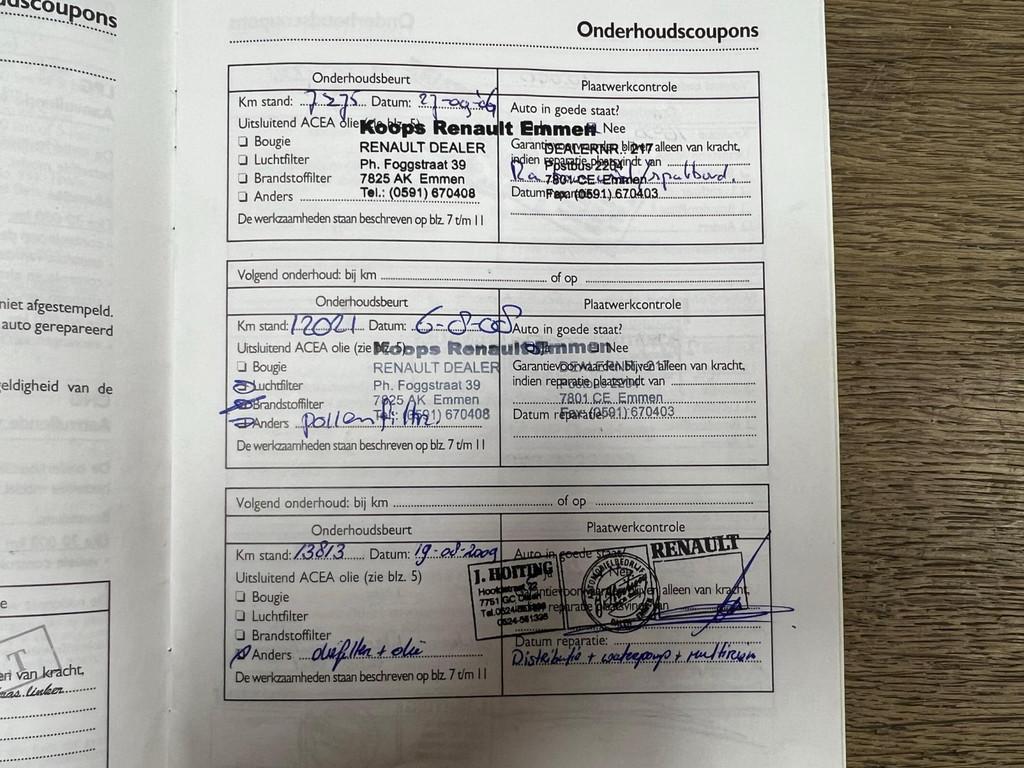 Onderhoudscoupons
Onderhoudsbeurt
Plaatwerkcontrole
Km stand: 7275 Datum: 27-09-06
Auto in goede staat?
Uitsluitend ACEA olie (zie blz. 5)
Nee
Koops Renault Emmen
RENAULT DEALER
Ph. Foggstraat 39
7825 AK Emmen
Tel.: (0591) 670408
DEALERNR.: 217
Postbus 2204
7801 CE Emmen
Fax: (0591) 670403
Bougie
Luchtfilter
Brandstoffilter
Anders
Garantievoorwaarden blijven alleen van kracht,
indien reparatie plaatsvindt van
spatbord.
Datum reparatie:
De werkzaamheden staan beschreven op blz. 7 t/m 11
Volgend onderhoud: bij km of op
Onderhoudsbeurt
Plaatwerkcontrole
Km stand: 12021 Datum: 6-8-08
Auto in goede staat?
Uitsluitend ACEA olie (zie blz. 5)
Nee
Koops Renault Emmen
RENAULT DEALER
Ph. Foggstraat 39
7825 AK Emmen
Tel.: (0591) 670408
DEALERNR.: 217
Postbus 2204
7801 CE Emmen
Fax: (0591) 670403
Bougie
Luchtfilter
Brandstoffilter
Anders pollenfilter
Garantievoorwaarden blijven alleen van kracht,
indien reparatie plaatsvindt van
Datum reparatie:
De werkzaamheden staan beschreven op blz. 7 t/m 11
Volgend onderhoud: bij km of op
Onderhoudsbeurt
Plaatwerkcontrole
Km stand: 13813 Datum: 19-08-2009
Auto in goede staat?
Uitsluitend ACEA olie (zie blz. 5)
Nee
J. HOITING
7751 GC Dalen
RENAULT
Bougie
Luchtfilter
Brandstoffilter
Anders oliefilter + olie
Garantievoorwaarden blijven alleen van kracht,
indien reparatie plaatsvindt van
Datum reparatie:
Distributie + waterpomp + multiriem
De werkzaamheden staan beschreven op blz. 7 t/m 11
niet afgestempeld.
auto gerepareerd
van de
van kracht,
linker